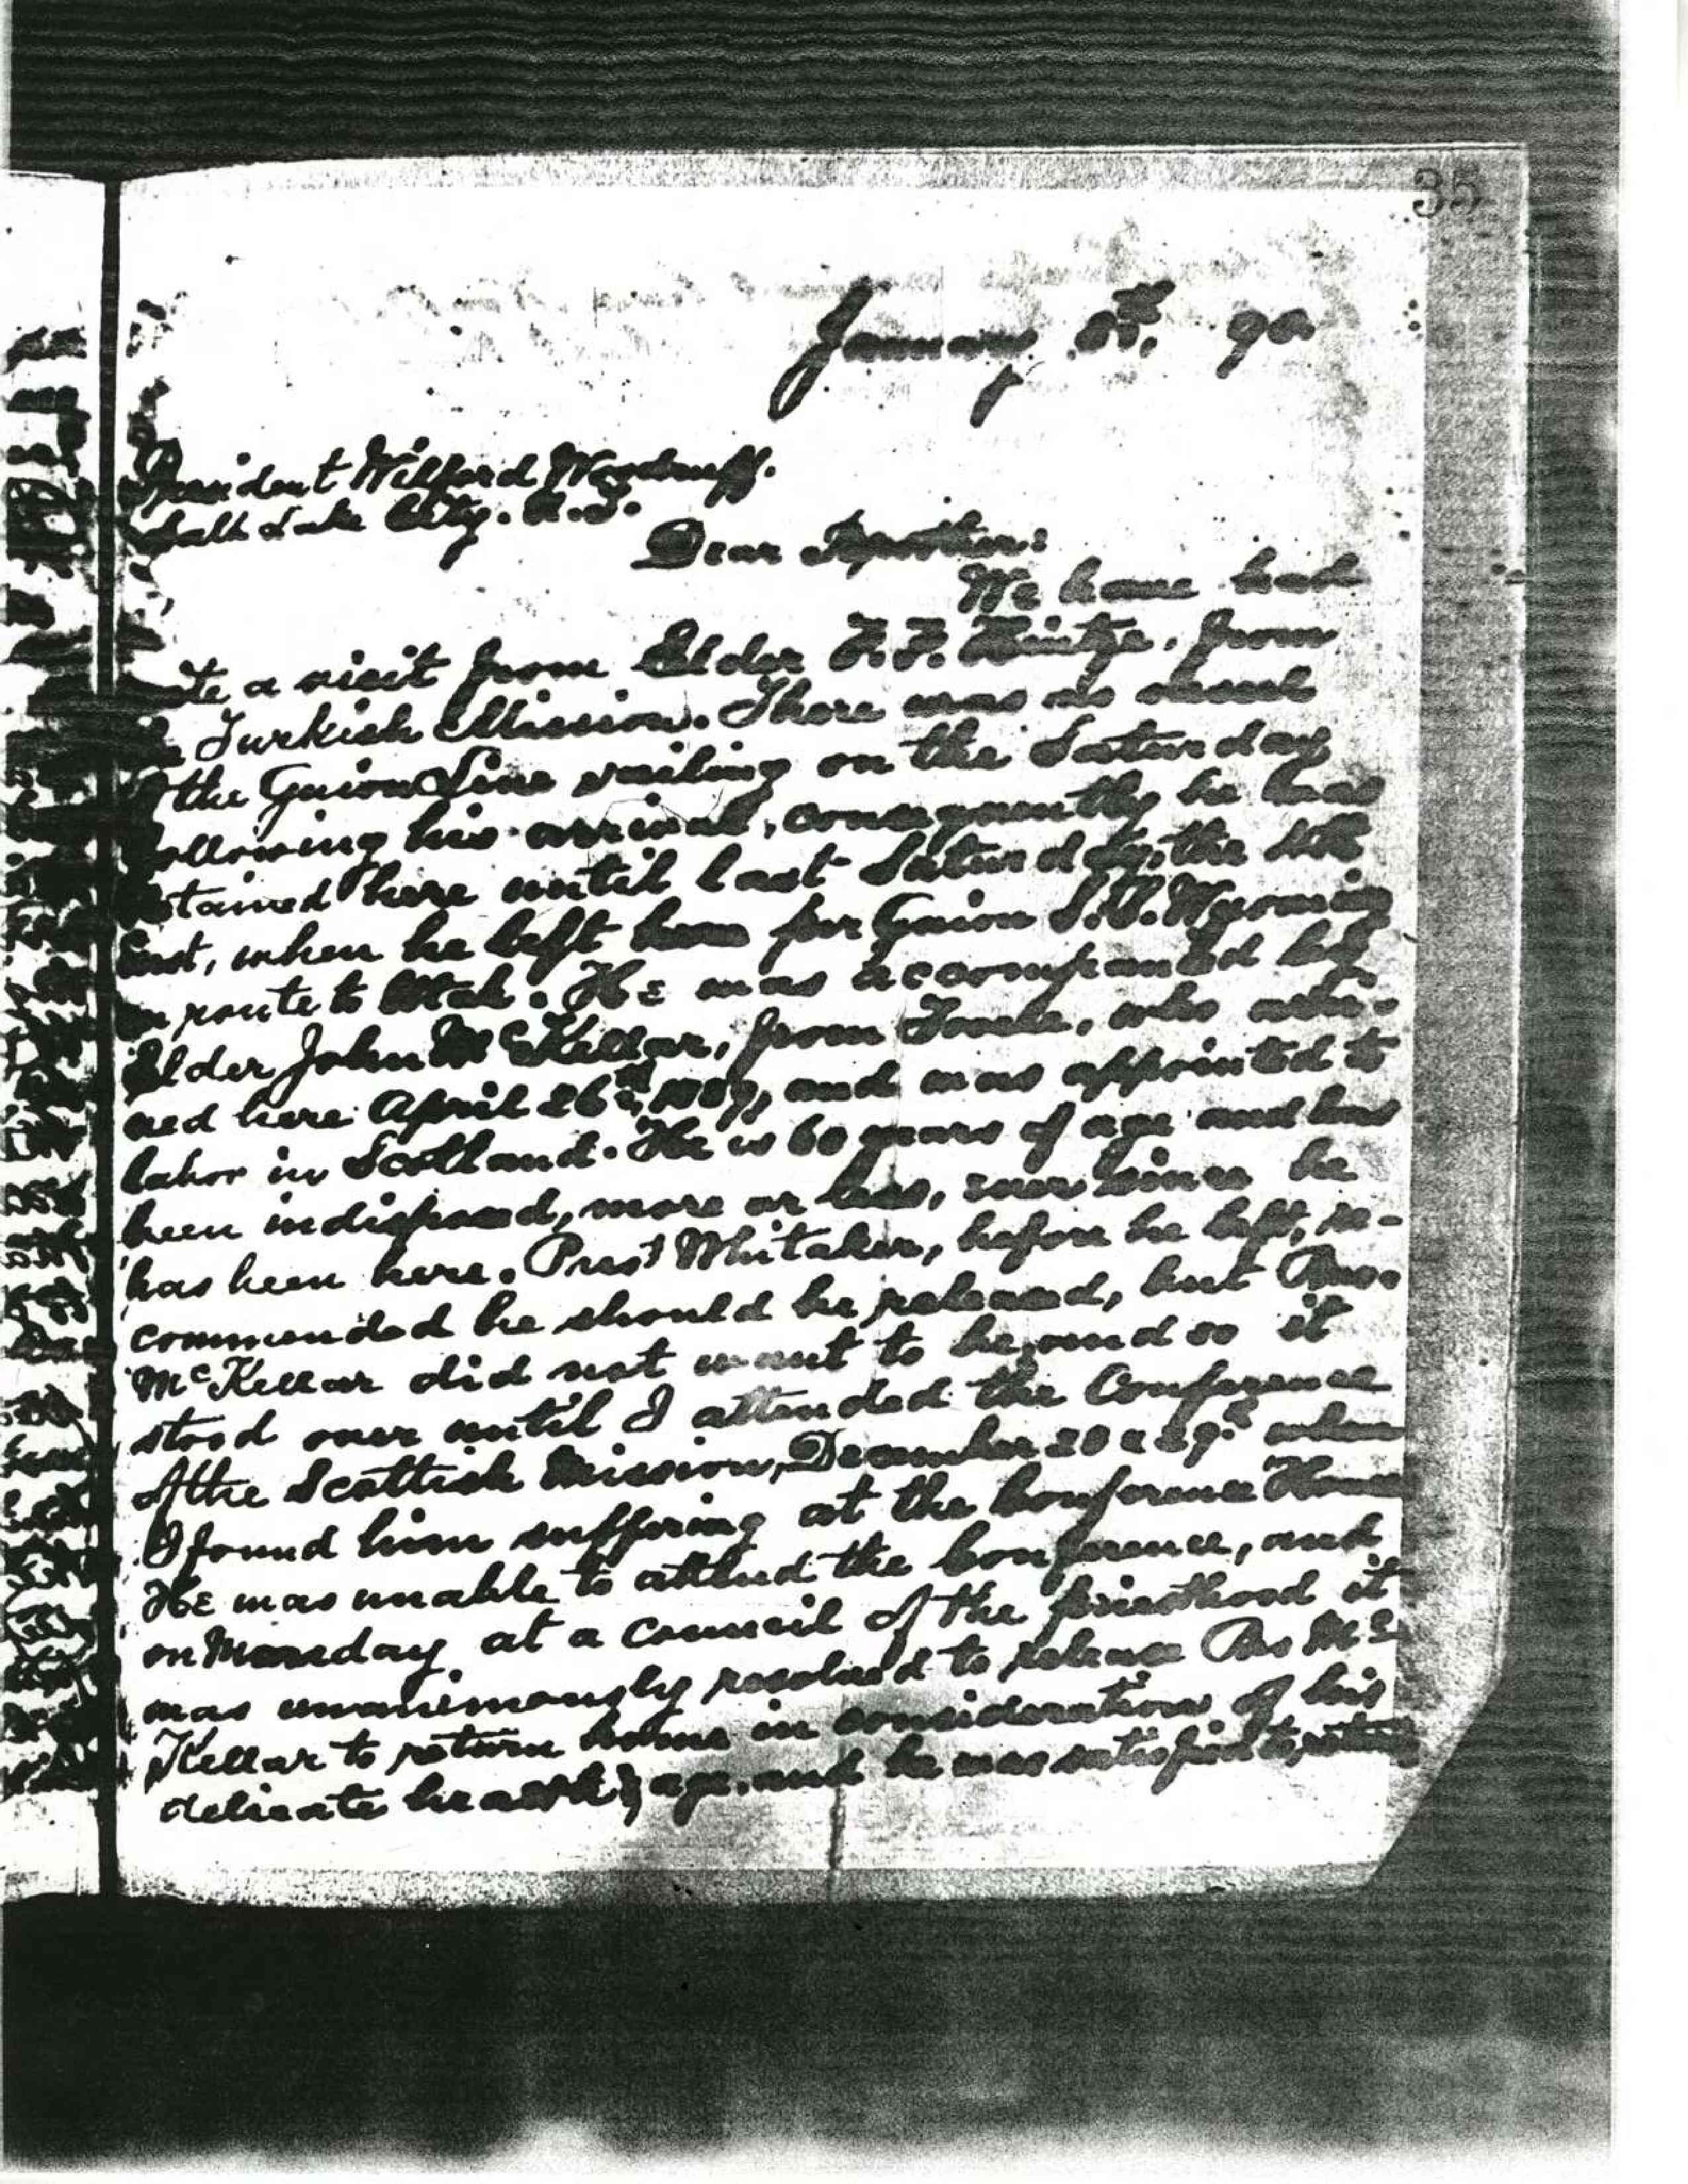 35
January 90
President Wilford Woodruff.
Salt Lake City. U.S.
Dear Brother:
We have had
quite a visit from Elder F.F. Hintze, from
the Turkish Mission. There was no vessel
of the Guion Line sailing on the Saturday
following his arrival, consequently he was
detained here until last Saturday, the
inst, when he left here per Guion S.S. Wyoming
en route to Utah. He was accompanied by
Elder John McKellar, from Tooele, who arri-
ved here April 26th, 1889, and was appointed to
labor in Scotland. He is 60 years of age and has
been indisposed, more or less, ever since he
has been here. Prest Whitaker, before he left, re-
commended he should be released, but Bro.
McKellar did not want to be, and so it
stood over until I attended the Conference
of the Scottish Mission, December 28 & 29th when
I found him suffering at the Conference House
He was unable to attend the Conference, and
on Monday at a council of the priesthood it
was unanimously resolved to release Bro Mc
Kellar to return home in consideration of his
delicate health & age, and he was satisfied to return